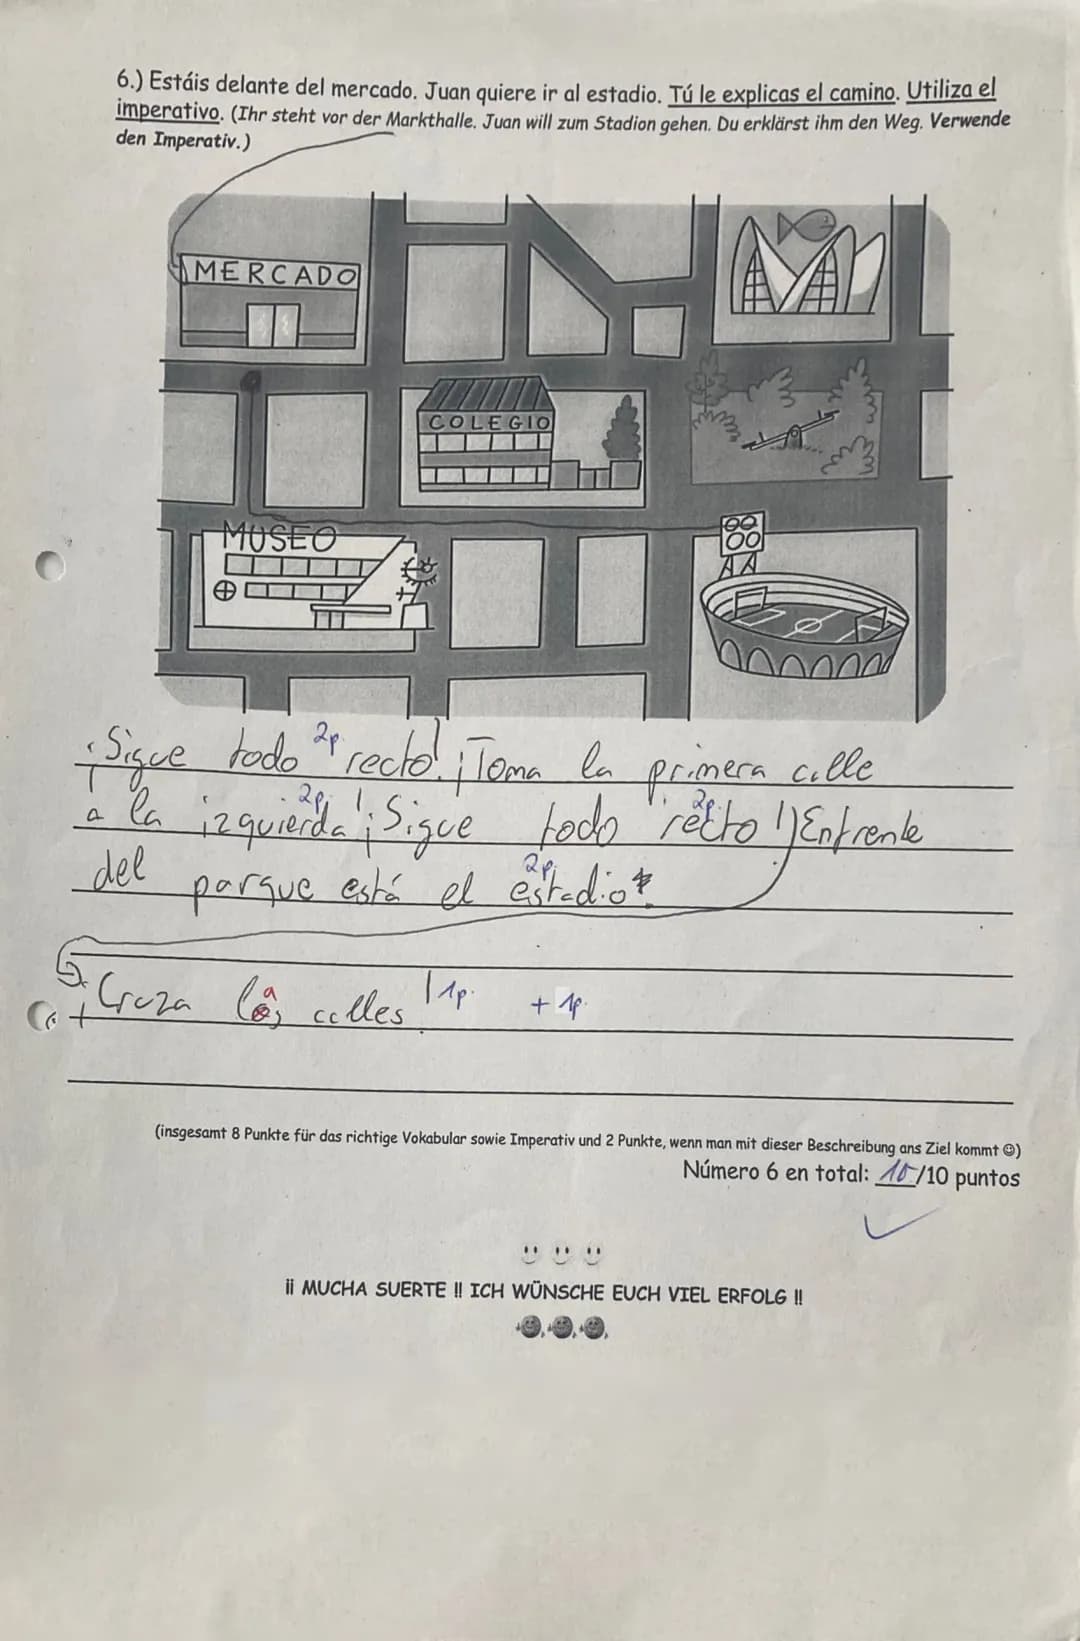 6.) Estáis delante del mercado. Juan quiere ir al estadio. Tú le explicas el camino. Utiliza el
imperativo. (Ihr steht vor der Markthalle. Juan will zum Stadion gehen. Du erklärst ihm den Weg. Verwende
den Imperativ.)
MERCADO
COLEGIO
MUSEO
¡Sigue todo 2p. recto! ¡Toma la primera calle
a la izquierda 2p.! ¡Sigue todo recto 2p.! Enfrente
del parque está el estadio 2p.
¡Cruza las calles! 1p. + 1p.
(insgesamt 8 Punkte für das richtige Vokabular sowie Imperativ und 2 Punkte, wenn man mit dieser Beschreibung ans Ziel kommt ☺)
Número 6 en total: 10/10 puntos
¡¡ MUCHA SUERTE !! ICH WÜNSCHE EUCH VIEL ERFOLG !!